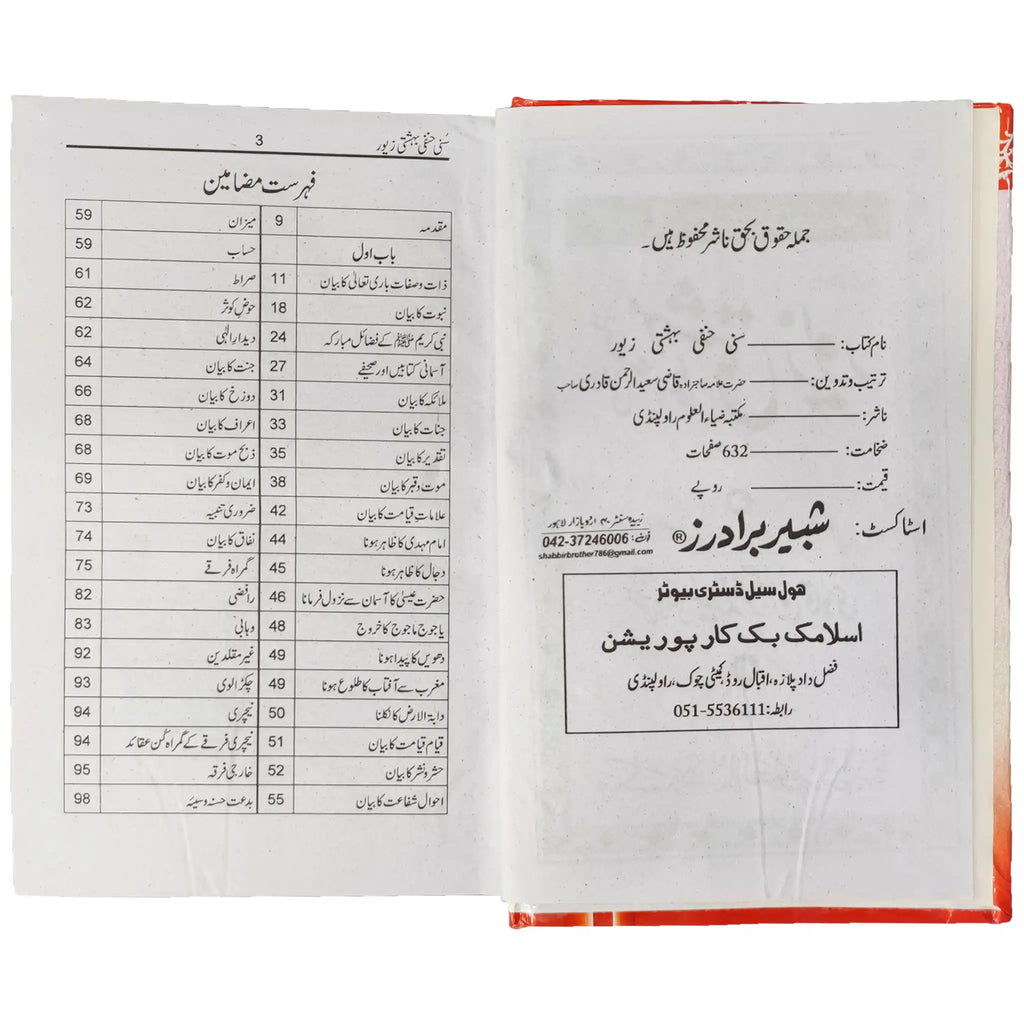 جملہ حقوق بحق ناشر محفوظ ہیں۔
نام کتاب: سنی حنفی بہشتی زیور
ترتیب و تدوین: حضرت علامہ صاحبزادہ قاضی سعید الرحمن قادری صاحب
ناشر: مکتبہ ضیاء العلوم راولپنڈی
ضخامت: 632 صفحات
قیمت: روپے
اسٹاکسٹ: شبیر برادرز ® زبیدہ سنٹر ۴۰ اردو بازار لاہور
فون: 042-37246006
shabbirbrother786@gmail.com
ھول سیل ڈسٹری بیوٹر
اسلامک بک کارپوریشن
فضل داد پلازہ، اقبال روڈ، کمیٹی چوک، راولپنڈی
رابطہ: 051-5536111
سُنی حنفی بہشتی زیور 3
فہرست مضامین
مقدمہ 9 میزان 59
باب اول حساب 59
ذات وصفات باری تعالیٰ کا بیان 11 صراط 61
نبوت کا بیان 18 حوضِ کوثر 62
نبی کریم ﷺ کے فضائل مبارکہ 24 دیدارِ الٰہی 62
آسمانی کتابیں اور صحیفے 27 جنت کا بیان 64
ملائکہ کا بیان 31 دوزخ کا بیان 66
جنات کا بیان 33 اعراف کا بیان 68
تقدیر کا بیان 35 ذبح موت کا بیان 68
موت و قبر کا بیان 38 ایمان و کفر کا بیان 69
علاماتِ قیامت کا بیان 42 ضروری تنبیہ 73
امام مہدی کا ظاہر ہونا 44 نفاق کا بیان 74
دجال کا ظاہر ہونا 45 گمراہ فرقے 75
حضرت عیسیٰ کا آسمان سے نزول فرمانا 46 رافضی 82
یاجوج ماجوج کا خروج 48 وہابی 83
دھویں کا پیدا ہونا 49 غیر مقلدین 92
مغرب سے آفتاب کا طلوع ہونا 49 چکڑالوی 93
دابۃ الارض کا نکلنا 50 نیچری 94
قیام قیامت کا بیان 51 نیچری فرقے کے گمراہ کُن عقائد 94
حشر و نشر کا بیان 52 خارجی فرقہ 95
احوال شفاعت کا بیان 55 بدعت حسنہ و سیئہ 98